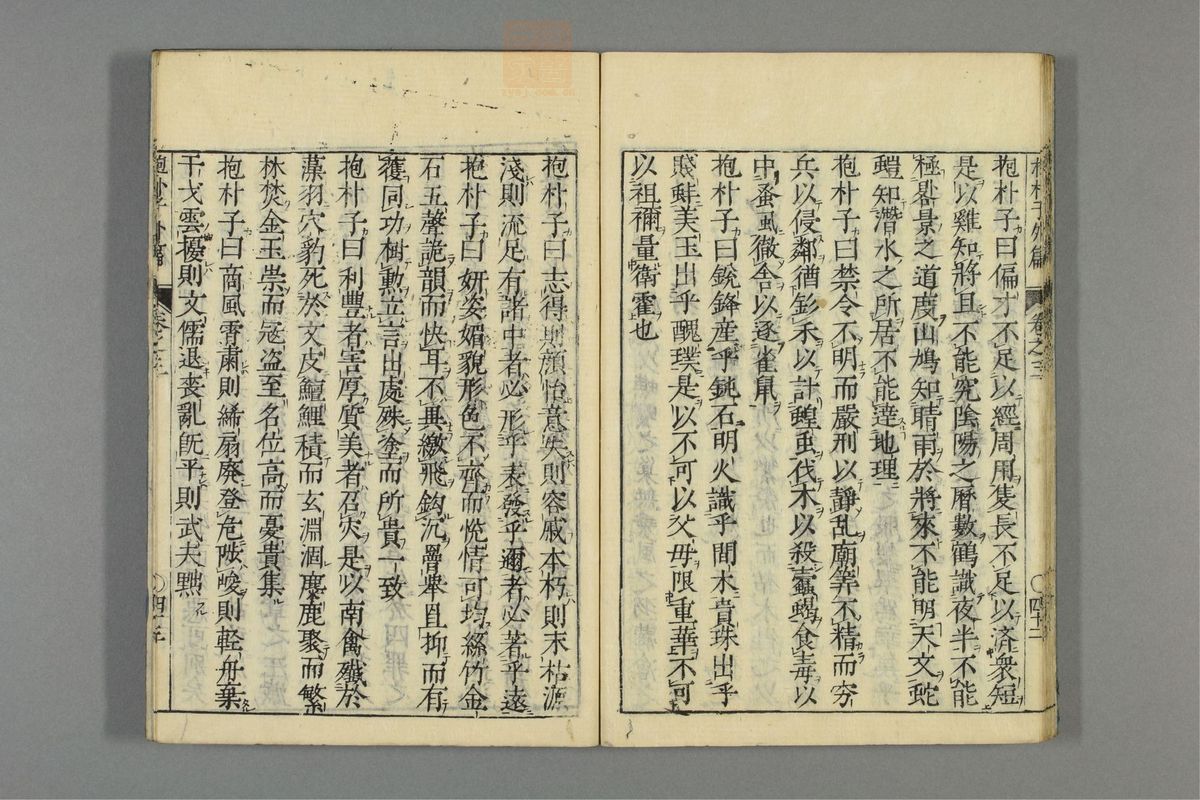 抱朴子曰偏才不足以經周用隻長不足以済衆短
是以雞知將旦不能究陰陽之曆數鶴識夜半不能
極晷景之道度山鳩知晴雨於將來不能明天文蛇
螘知潛水之所居不能達地理
抱朴子曰禁令不明而嚴刑以靜乱廟筭不精而穷
兵以侵鄰猶釤禾以計蝗虫伐木以殺蠹蝎食毒以
中蚤虱徹舍以逐雀鼠
抱朴子曰銳鋒産乎鈍石明火識乎闇木貴珠出乎
賤蚌美玉出乎醜璞是以不可以父母限重華不可
以祖禰量衛霍也
抱朴子外篇
卷之三
〇四十二
抱朴子曰志得則顔怡意失則容戚本朽則末枯源
淺則流促有諸中者必形乎表發乎邇者必著乎遠
抱朴子曰妍姿媚貌形色不齊而悅情可均絲竹金
石五聲詭韻而快耳不異繳飛鈎沉罾舉罝抑而有
獲同功樹勳立言出處殊塗而所貴一致
抱朴子曰利豐者害厚質美者召灾是以南禽殲於
藻羽穴豹死於文皮鱣鯉積而玄淵涸麋鹿聚而繁
林焚金玉崇而冦盗至名位高而憂貴集
抱朴子曰商風霄肅則絺扇廢登危陟峻則軽舟棄
干戈雲擾則文儒退喪亂旣平則武夫黜
抱朴子外篇